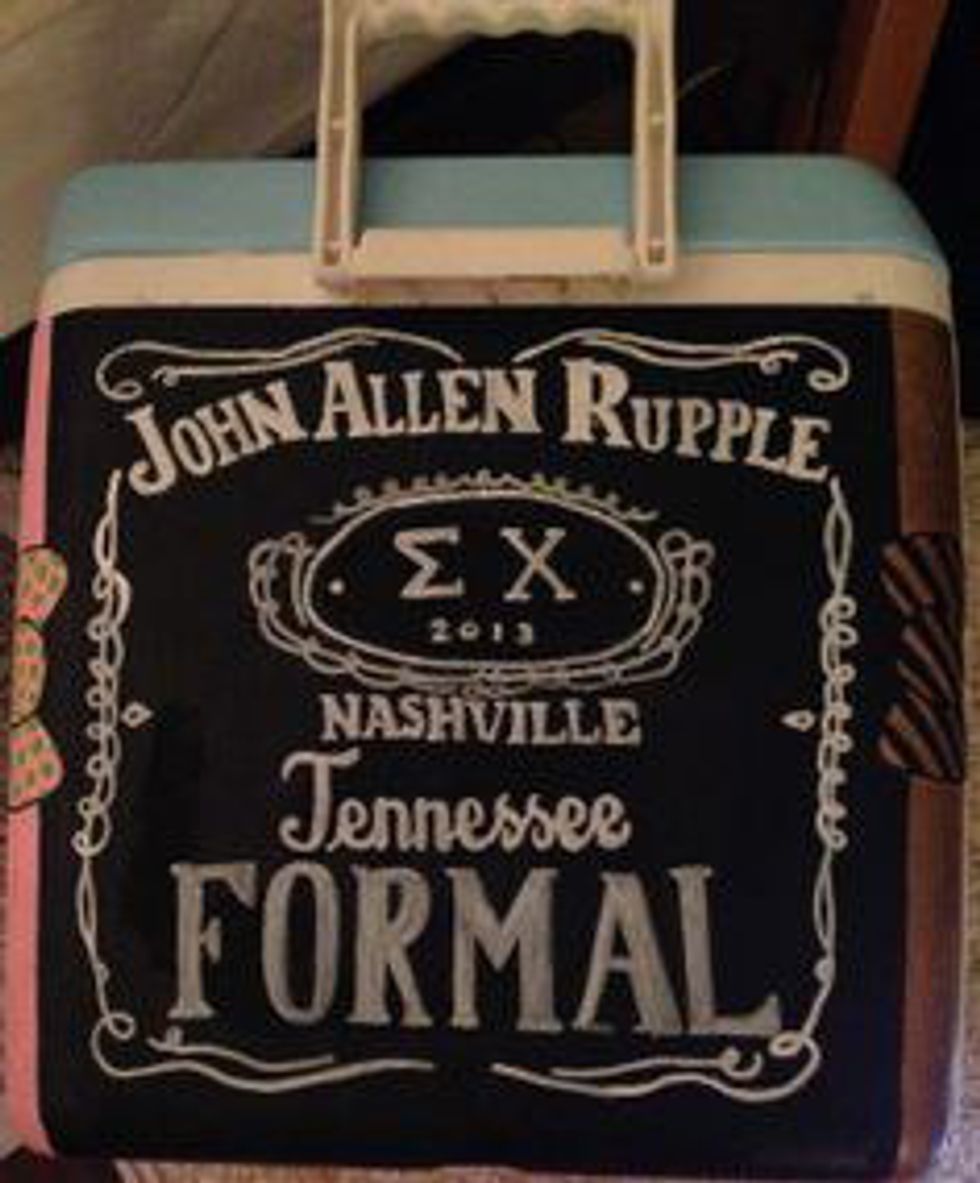 JOHN ALLEN RUPPLE
Σ X
2013
NASHVILLE
Tennessee
FORMAL